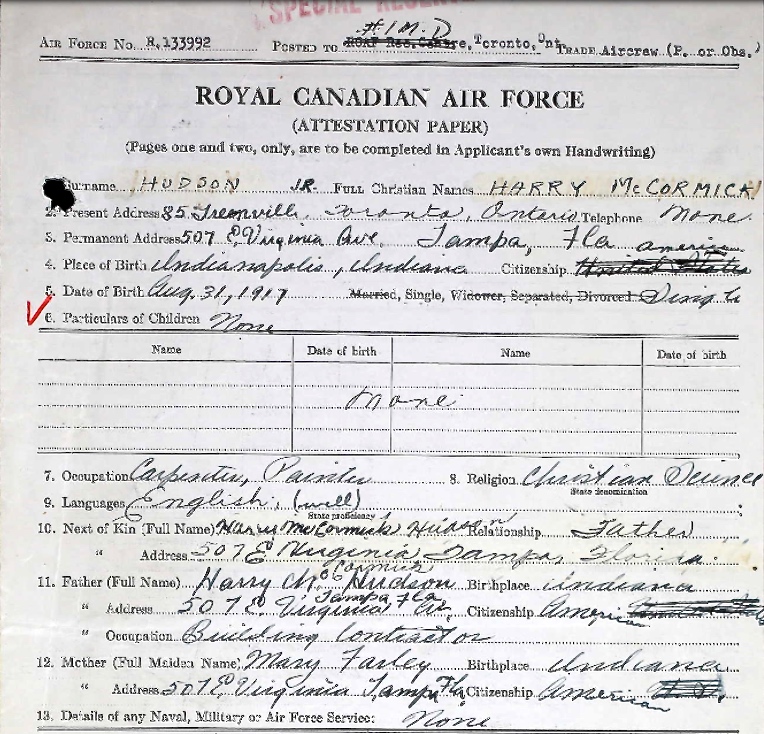 SPECIAL RESERVE
H.I.M.D
AIR FORCE NO. R.133992 POSTED TO RCAF Rec. Centre, Toronto, Ont TRADE Aircrew (P. or Obs.)
ROYAL CANADIAN AIR FORCE
(ATTESTATION PAPER)
(Pages one and two, only, are to be completed in Applicant's own Handwriting)
Surname HUDSON JR. FULL CHRISTIAN NAMES HARRY McCORMICK
2. Present Address 85 Toronto, Ontario Telephone None
3. Permanent Address 507 E Virginia Ave. Tampa, Fla
4. Place of Birth Indianapolis, Indiana Citizenship United States american
5. Date of Birth Aug. 31, 1917 Married, Single, Widower, Separated, Divorced Single
6. Particulars of Children None
Name Date of birth Name Date of birth
None
7. Occupation Carpenter, Painter 8. Religion Christian Science
State denomination
9. Languages English, (well)
State proficiency
10. Next of Kin (Full Name) Harry McCormick Hudson Relationship Father
" Address 507 E Virginia Tampa, Florida
11. Father (Full Name) Harry Mc Cormick Hudson Birthplace Indiana
" Address 507 E. Virginia Av. Tampa Fla Citizenship American
" Occupation Building Contractor
12. Mother (Full Maiden Name) Mary Farley Birthplace Indiana
" Address 507 E Virginia Tampa Fla Citizenship American U.S.
13. Details of any Naval, Military or Air Force Service: None